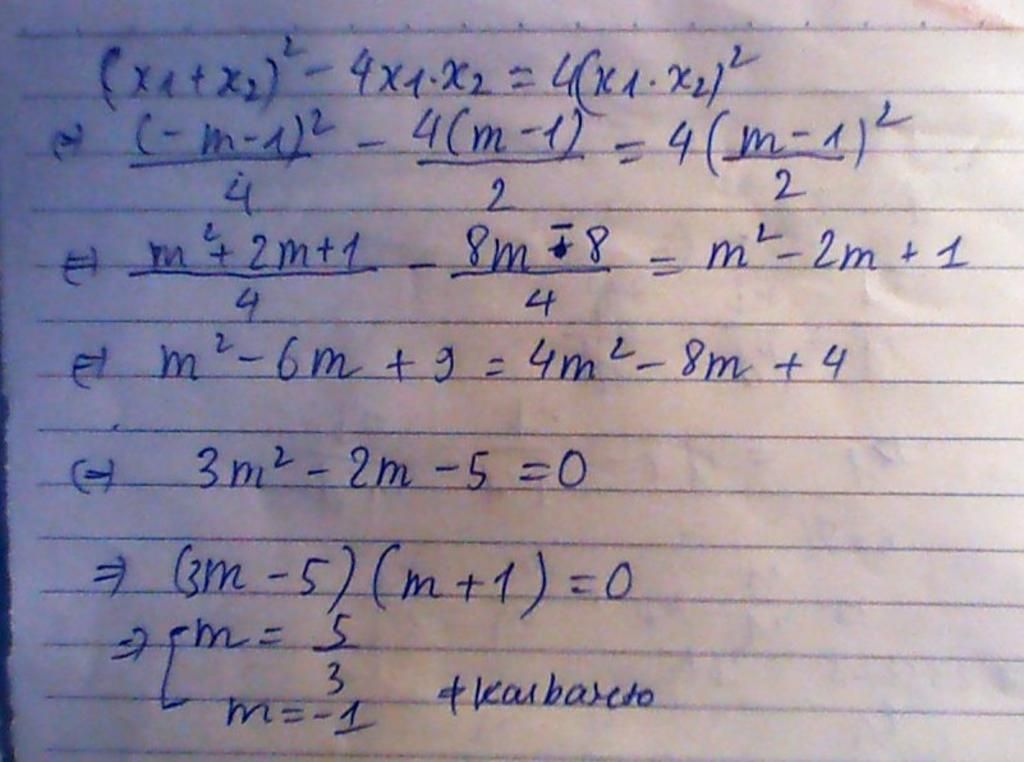 (x1+x2)² - 4x1.x2 = 4(x1.x2)²
⇔ (-m-1)²/4 - 4(m-1)/2 = 4(m-1/2)²
⇔ m²+2m+1/4 - 8m-8/4 = m²-2m+1
⇔ m²-6m+9 = 4m²-8m+4
⇔ 3m²-2m-5=0
⇒ (3m-5)(m+1)=0
⇒ [m=5/3
m=-1